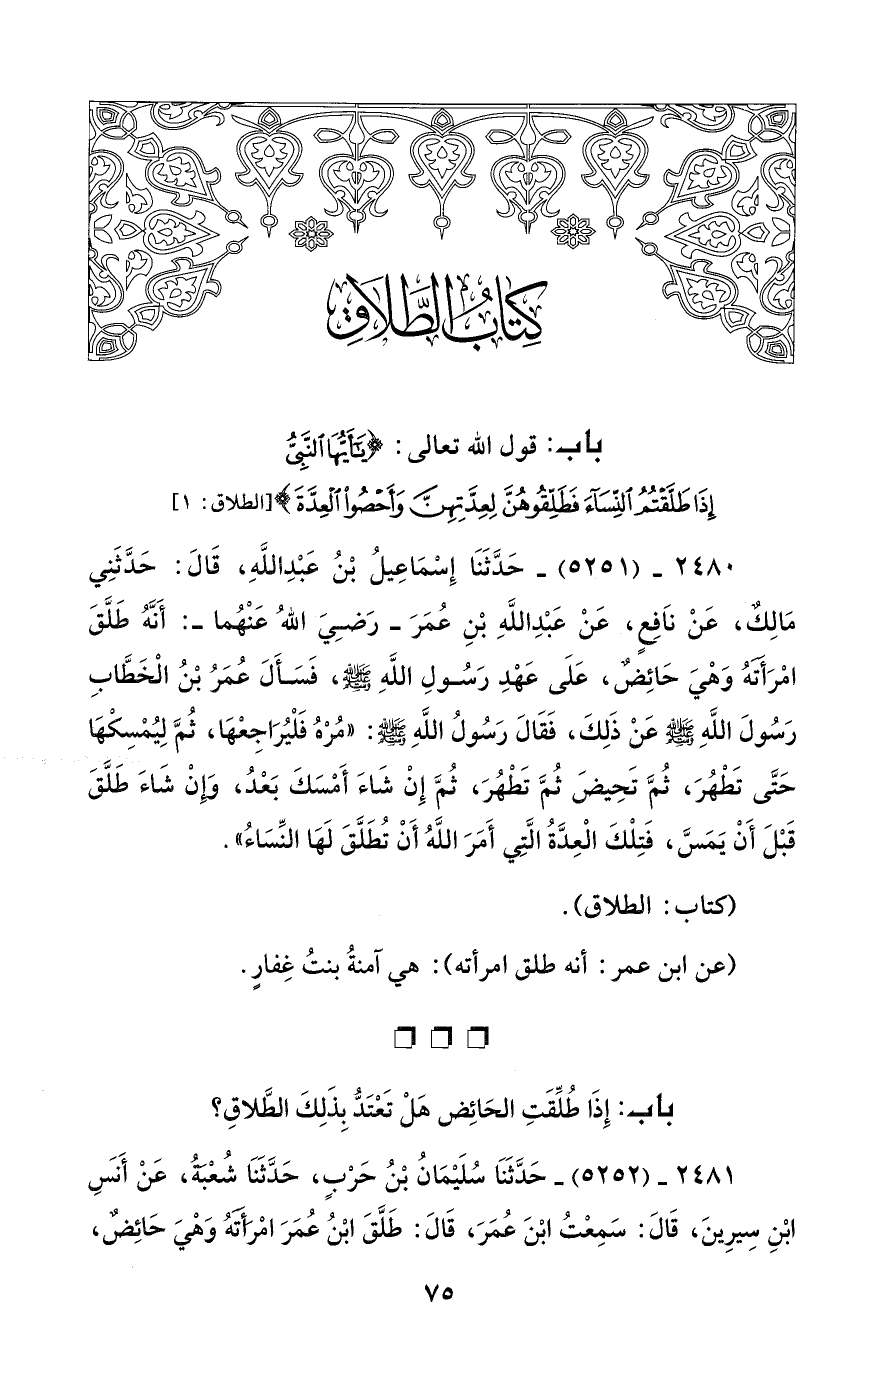 كِتَابُ الطَّلَاقِ
باب: قول الله تعالى: ﴿يَٰٓأَيُّهَا ٱلنَّبِيُّ
إِذَا طَلَّقْتُمُ ٱلنِّسَآءَ فَطَلِّقُوهُنَّ لِعِدَّتِهِنَّ وَأَحْصُوا۟ ٱلْعِدَّةَ﴾[الطلاق: ١]
٢٤٨٠ ـ (٥٢٥١) ـ حَدَّثَنَا إِسْمَاعِيلُ بْنُ عَبْدِاللَّهِ، قَالَ: حَدَّثَنِي
مَالِكٌ، عَنْ نَافِعٍ، عَنْ عَبْدِاللَّهِ بْنِ عُمَرَ ـ رَضِيَ اللهُ عَنْهُما ـ: أَنَّهُ طَلَّقَ
امْرَأَتَهُ وَهْيَ حَائِضٌ، عَلَى عَهْدِ رَسُولِ اللَّهِ ﷺ، فَسَأَلَ عُمَرُ بْنُ الْخَطَّابِ
رَسُولَ اللَّهِ ﷺ عَنْ ذَلِكَ، فَقَالَ رَسُولُ اللَّهِ ﷺ: «مُرْهُ فَلْيُرَاجِعْهَا، ثُمَّ لِيُمْسِكْهَا
حَتَّى تَطْهُرَ، ثُمَّ تَحِيضَ ثُمَّ تَطْهُرَ، ثُمَّ إِنْ شَاءَ أَمْسَكَ بَعْدُ، وَإِنْ شَاءَ طَلَّقَ
قَبْلَ أَنْ يَمَسَّ، فَتِلْكَ الْعِدَّةُ الَّتِي أَمَرَ اللَّهُ أَنْ تُطَلَّقَ لَهَا النِّسَاءُ».
(كتاب: الطلاق).
(عن ابن عمر: أنه طلق امرأته): هي آمنةُ بنتُ غِفارٍ.
باب: إِذَا طُلِّقَتِ الحَائِض هَلْ تَعْتَدُّ بِذَلِكَ الطَّلاقِ؟
٢٤٨١ ـ (٥٢٥٢) ـ حَدَّثَنَا سُلَيْمَانُ بْنُ حَرْبٍ، حَدَّثَنَا شُعْبَةُ، عَنْ أَنَسِ
ابْنِ سِيرِينَ، قَالَ: سَمِعْتُ ابْنَ عُمَرَ، قَالَ: طَلَّقَ ابْنُ عُمَرَ امْرَأَتَهُ وَهْيَ حَائِضٌ،
٧٥